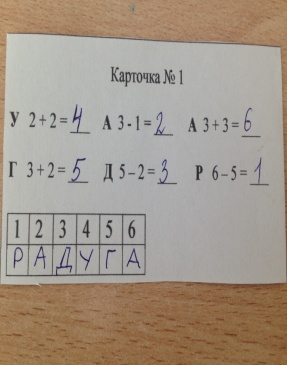 Карточка № 1
У 2+2=4 А 3-1=2 А 3+3=6
Г 3+2=5 Д 5–2=3 Р 6–5=1
1 2 3 4 5 6
Р А Д У Г А